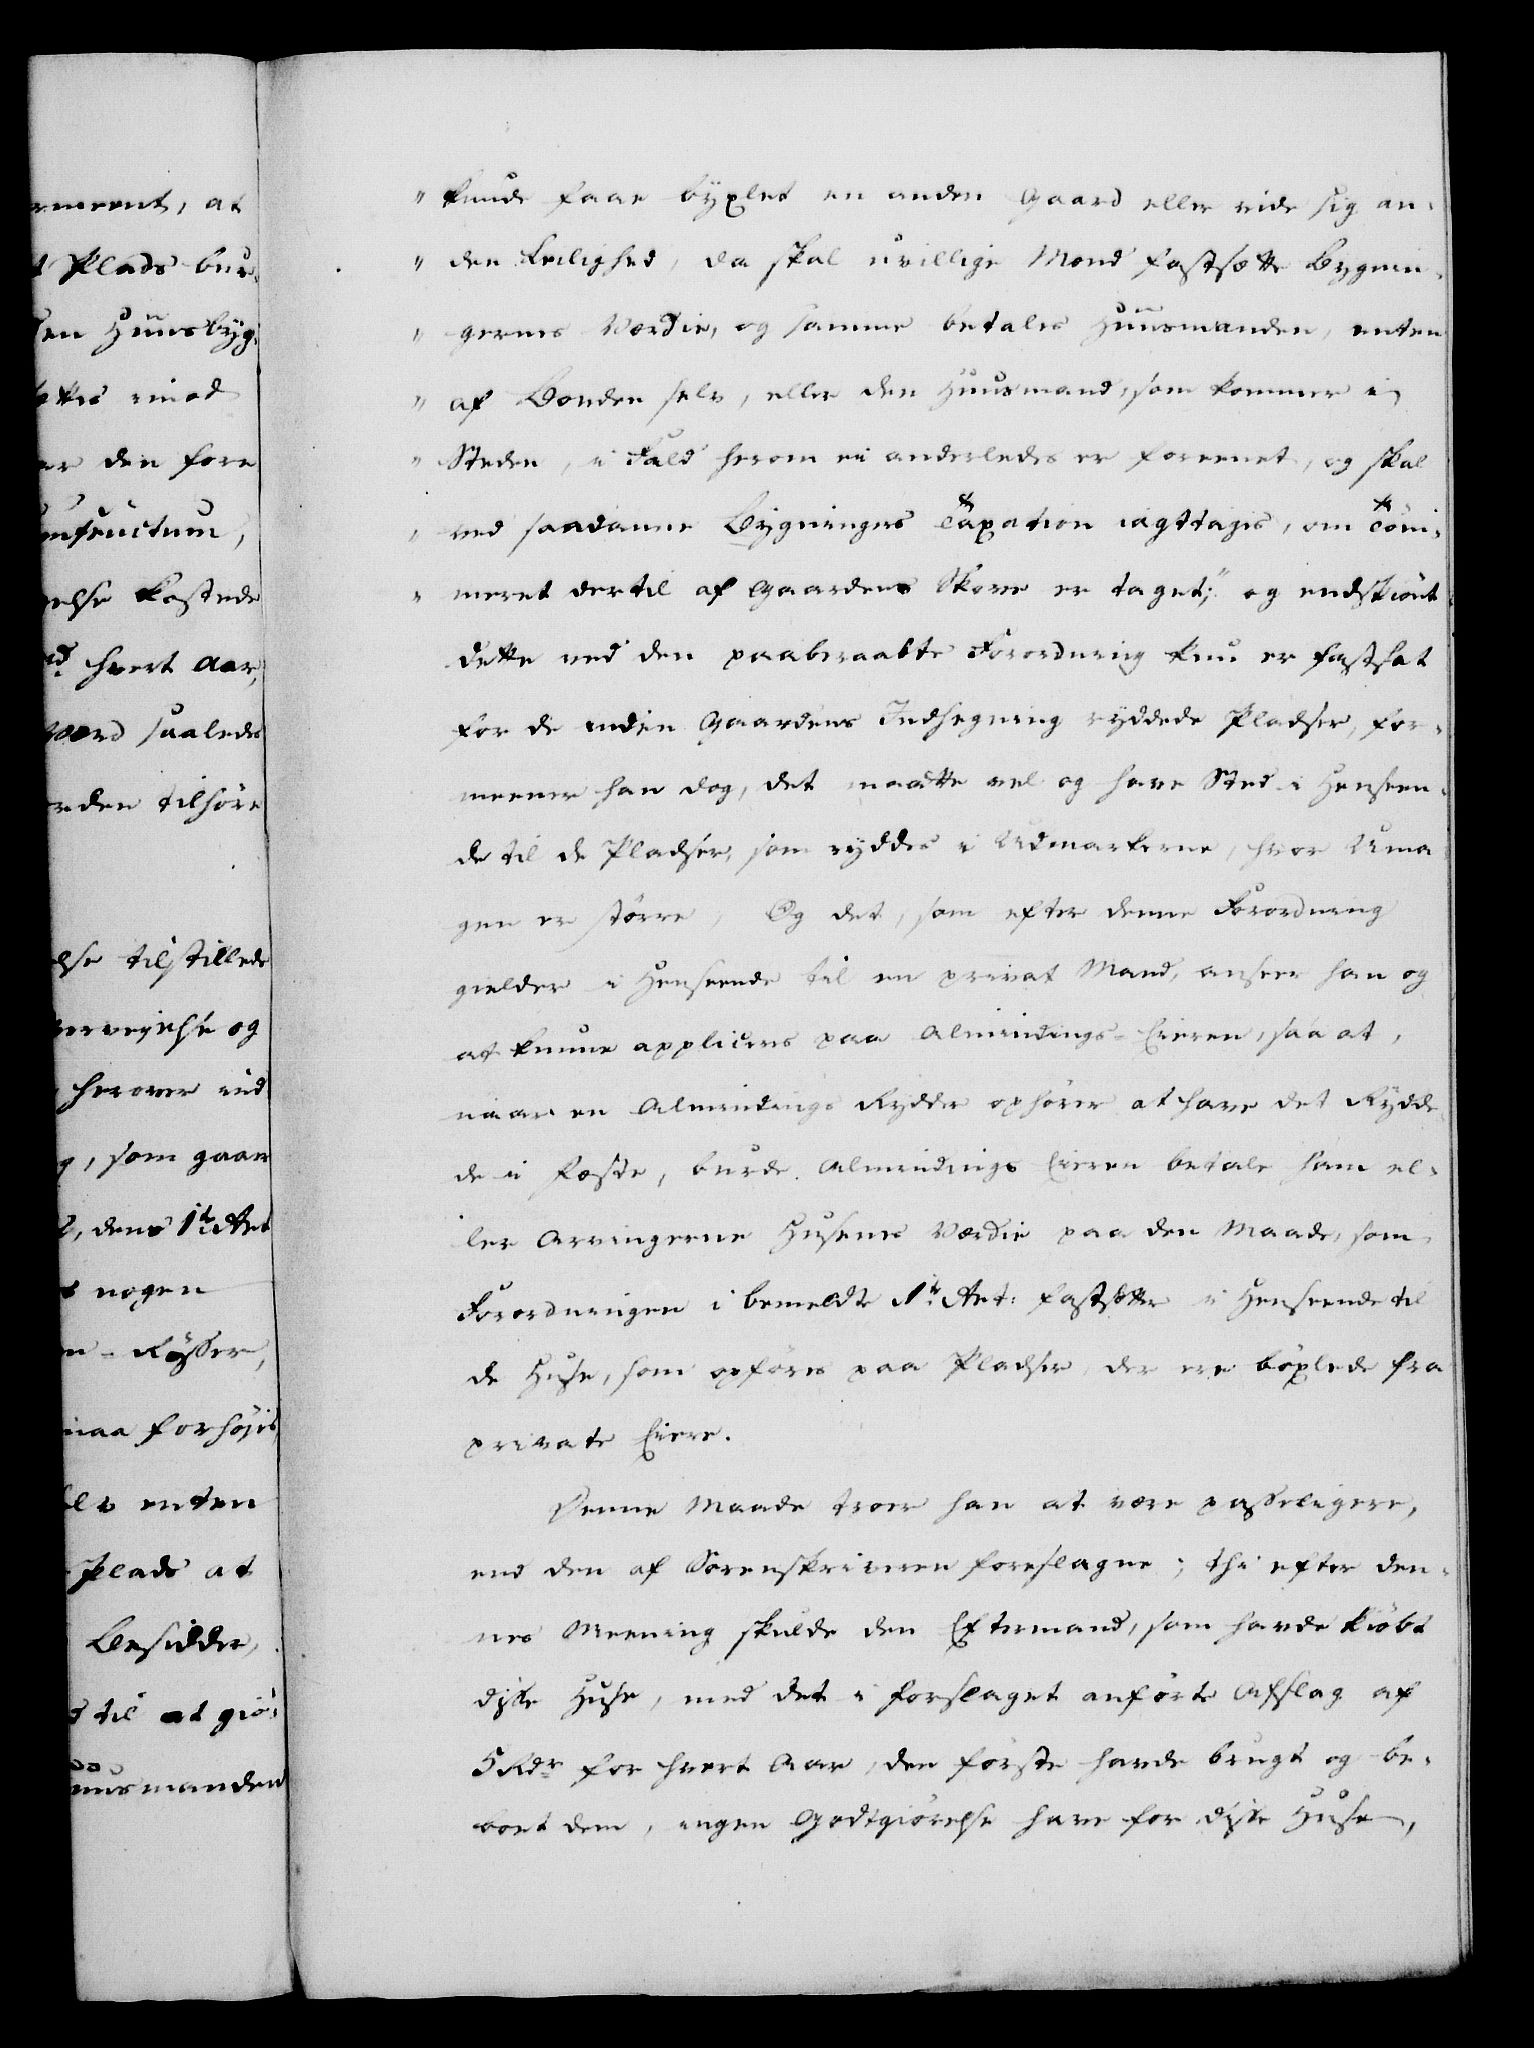 rmeent, at
t Plads bur,
en Huusbyg,
ettes imod
er den fore
usufructum,
else kostede
hvert Aar,
værd saaledes
orden tilhøre
else tilstillede
vervejelse og
herover ind
g, som gaar
dens 1te Art
s nogen
n-Rysser,
maa forhøjes
elv enten
Plads at
Besidder,
s til at giö,
uusmanden
" kunde faae bÿxlet en anden Gaard eller vide sig an,
" den Leilighed, da skal uvillige Mænd fastsætte Bygnin,
" gernes Værdie, og samme betales Huusmanden, enten
" af Bonden selv, eller den Huusmand, som kommer i
" Steden, i Fald herom ei anderledes er foreenet, og skal
" ved saadanne Bygningers Taxation iagttages, om Töm,
" meret dertil af Gaardens Skove er taget;" og endskiönt
dette ved den paaberaabte Forordning kun er fastsat
for de inden Gaardens Indhegning ryddede Pladser, for,
meener han dog, det maatte vel og have Sted i Henseen,
de til de Pladser, som ryddes i Udmarkerne, hvor Uma
gen er större, Og det, som efter denne Forordning
gielder i Henseende til en privat Mand, anseer han og
at kunne appliceres paa Almindings-Eieren, saa at,
naar en Almindings Rydder ophörer at have det Rydde,
de i Fæste, burde Almindings Eieren betale ham el,
ler Arvingerne Husenes Værdie paa den Maade, som
Forordningen i bemeldte 1te Art: fastsætter i Henseende til
de Huse, som opföres paa Pladser der ere böxlede fra
private Eiere.
Denne Maade troer han at være passeligere,
end den af Sorenskriveren foreslagne; thi efter den,
nes Meening skulde den Eftermand, som havde kiöbt
disse Huse, med det i Forslaget anförte Afslag af
5 Rdr for hvert Aar, den förste havde brugt og be,
boet dem, ingen Godtgiörelse have for disse Huse,